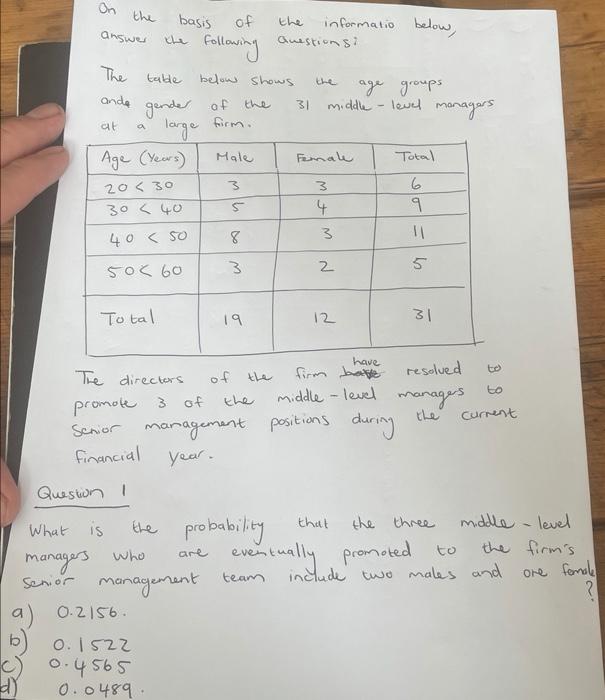 On the basis of the informatio below,
answer the following Questions:
The table below shows the age groups
ande gender of the 31 middle-level managers
at a large firm.
Age (Years) Male Female Total
20 < 30 3 3 6
30 < 40 5 4 9
40 < 50 8 3 11
50 < 60 3 2 5
Total 19 12 31
The directors of the firm have resolved to
promote 3 of the middle-level managers to
senior management positions during the current
financial year.
Question 1
What is the probability that the three middle-level
managers who are eventually promoted to the firm's
senior management team include two males and one female
?
a) 0.2156.
b) 0.1522
c) 0.4565
d) 0.0489.